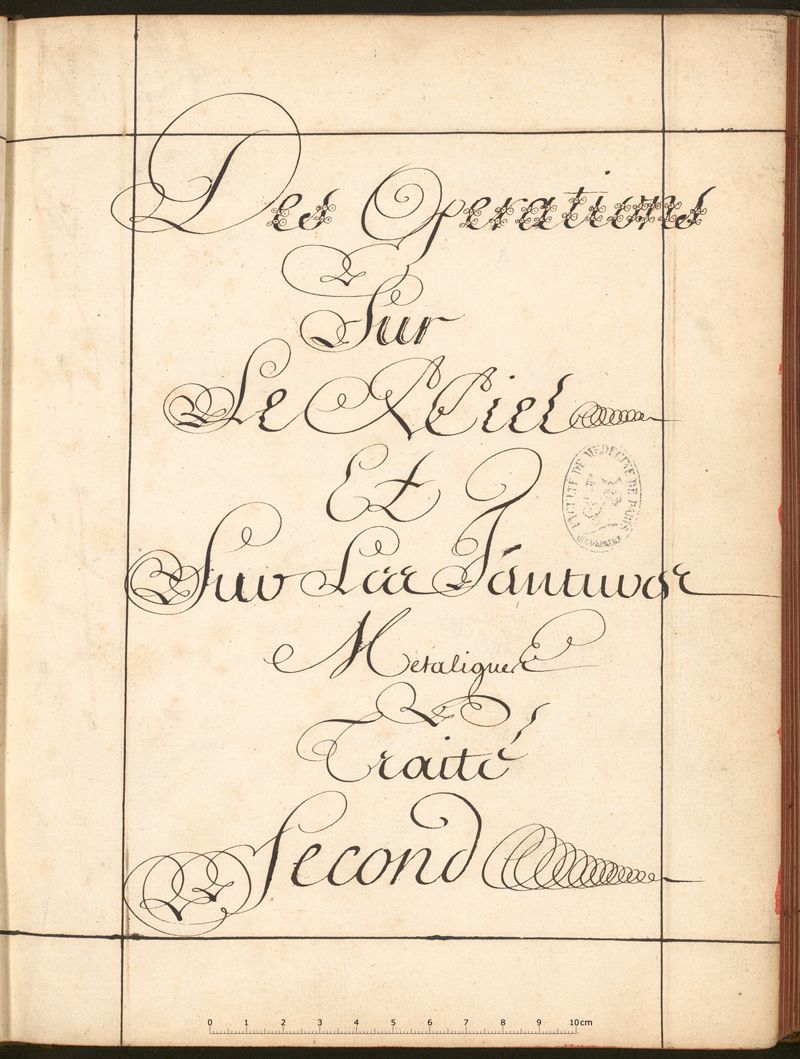 Des Operations
Sur
Le Miel
Et
Sur Les Tantures
Metaliques
Traité
Second
FACULTE DE MEDECINE DE PARIS
0 1 2 3 4 5 6 7 8 9 10cm